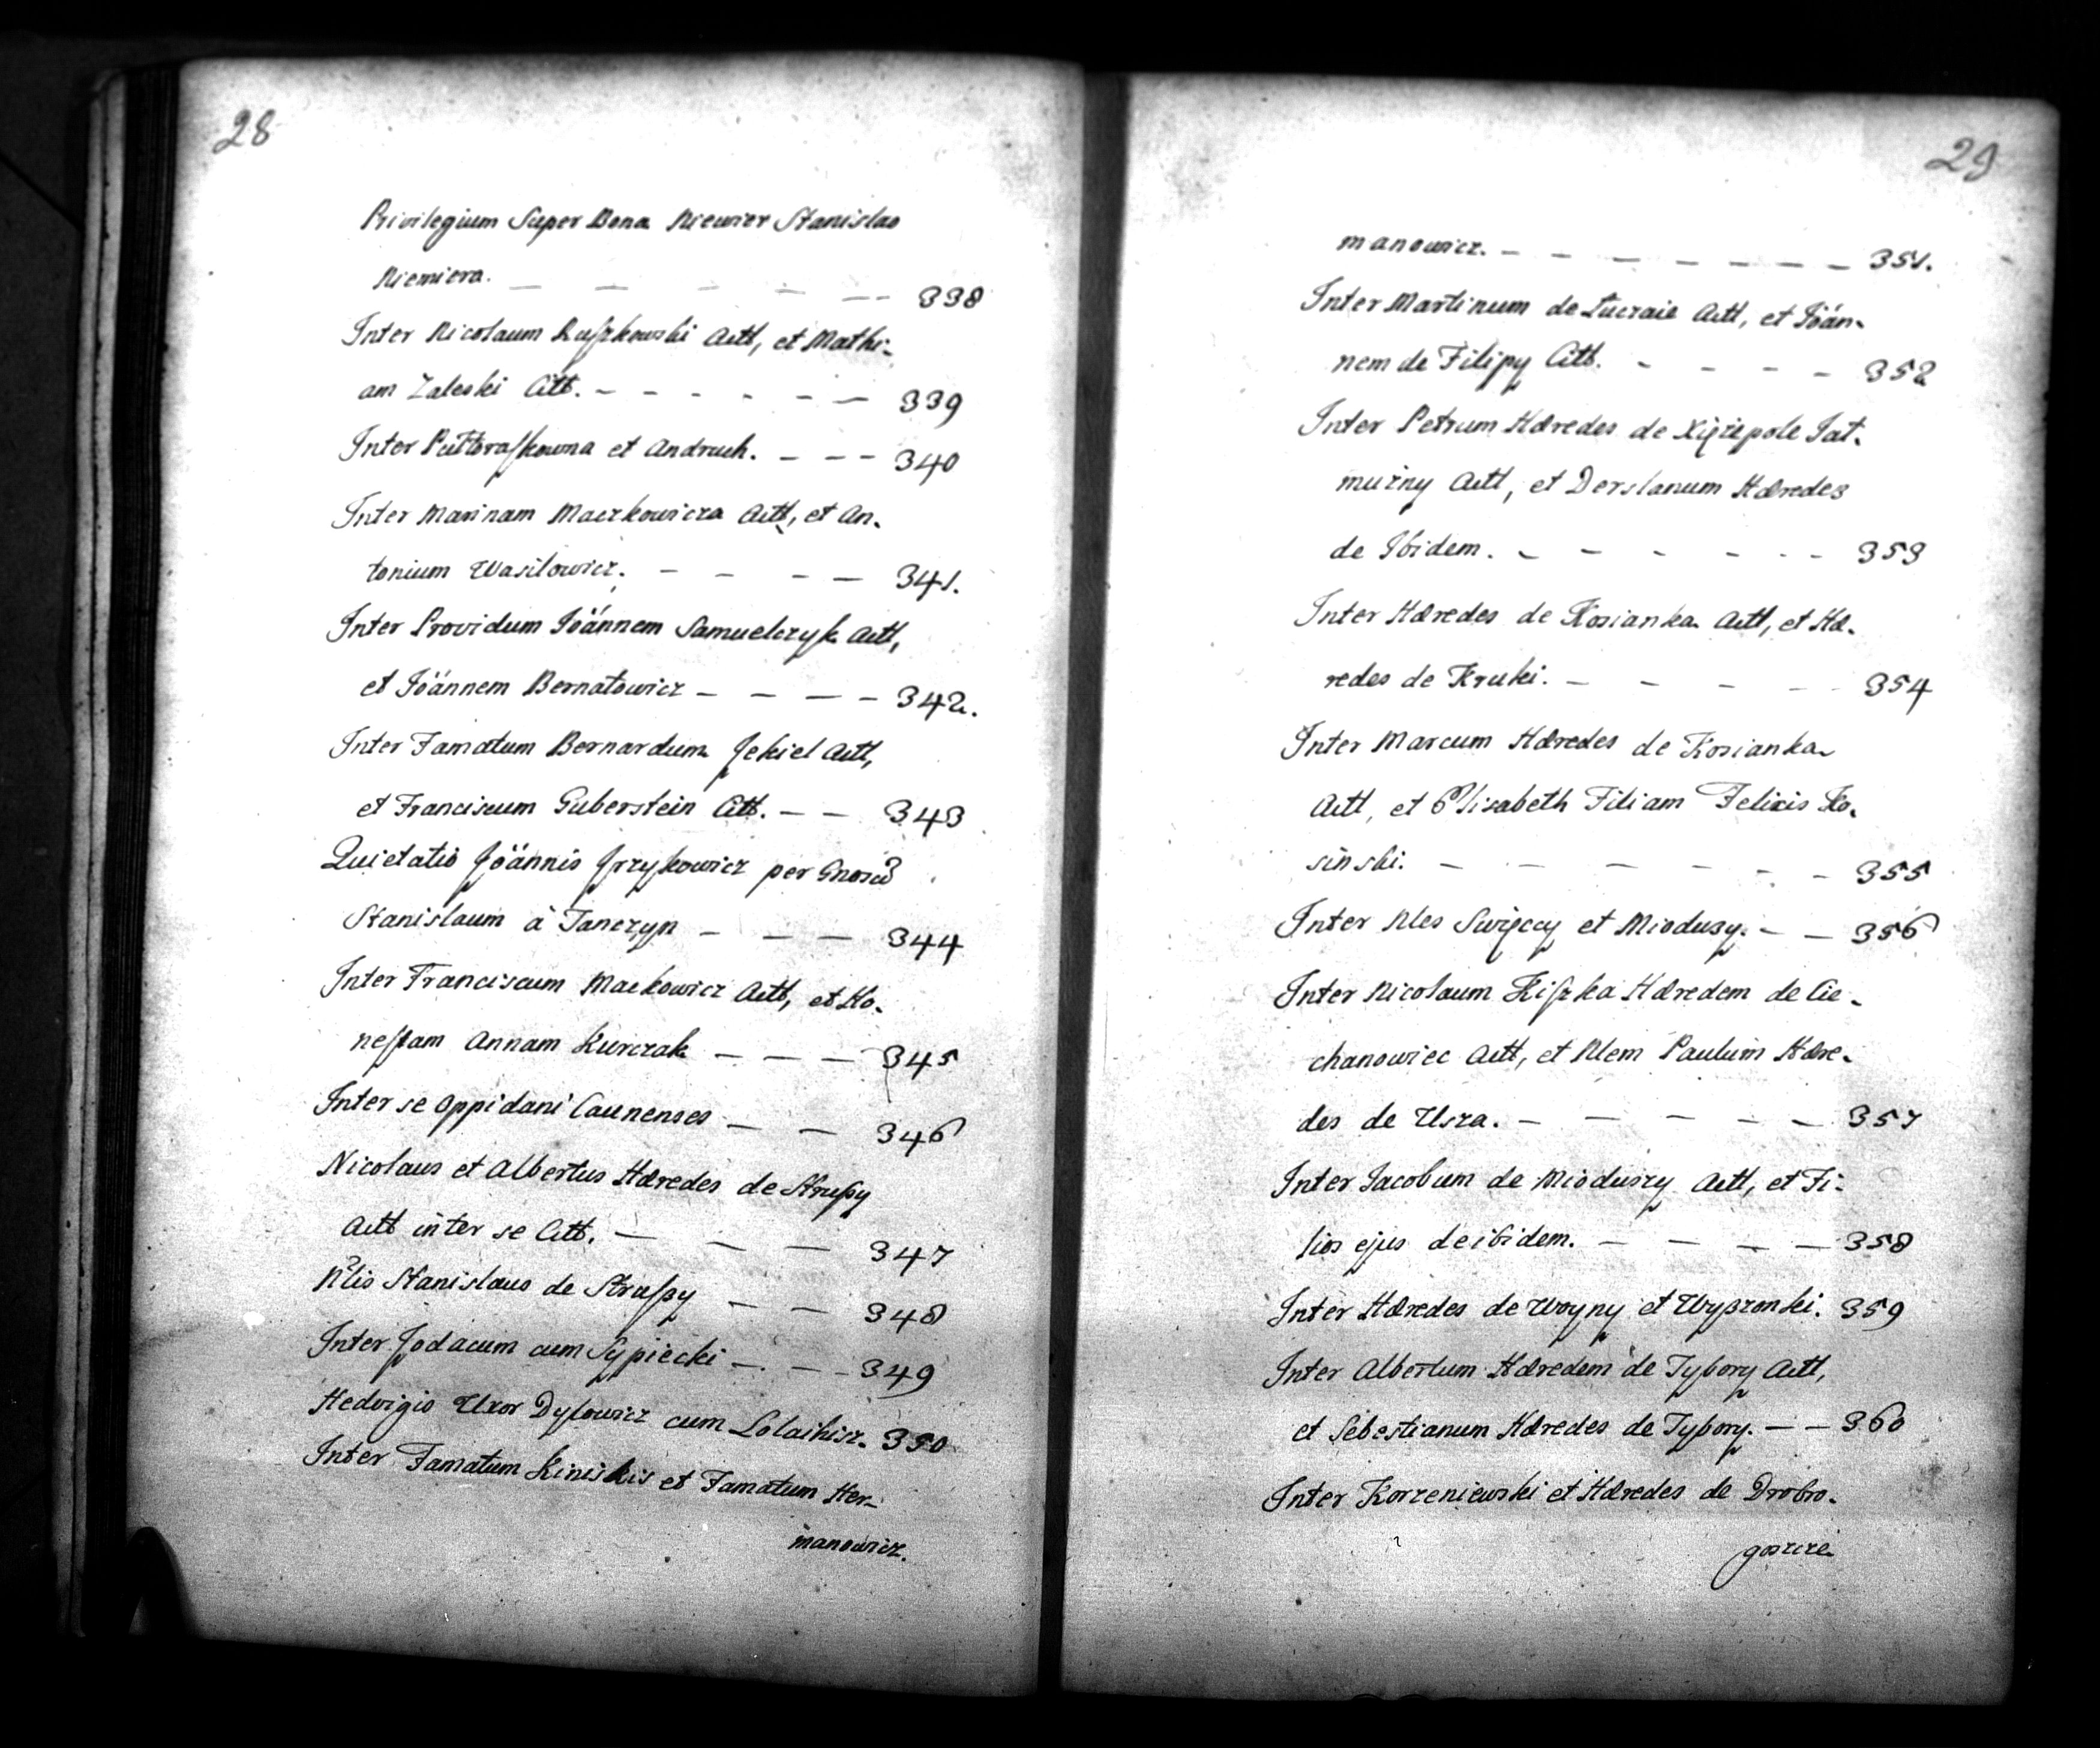 28
Privilegium Super Bona Niewier Stanislao
Niemiera. — — — — — 338
Inter Nicolaum Ruszkowski Actt, et Mathi-
am Zaleski Citt. — — — — — — 339
Inter Puttoraszkowna et Andruch. — — — 340
Inter Marinam Maczkowicza Actt, et An-
tonium Wasilowicz. — — — — 341.
Inter Providum Joännem Samuelczyk Actt,
et Joännem Bernatowicz — — — — 342.
Inter Famatum Bernardum Jekiel Actt,
et Franciscum Guberstein Citt. — — 343
Quietatio Joännis Jrzykowicz per
Stanislaum à Tanczyn — — — 344
Inter Franciscum Mackowicz Actt, et Ho-
nestam Annam Kurczak — — — 345
Inter se Oppidani Caunenses — — 346
Nicolaus et Albertus Hæredes de Skrussy
Actt inter se Citt. — — — 347
Nlis Stanislaus de Skrussy — — 348
Inter Jodacum cum Sypiecki — — 349
Hedvigis Uxor Dyssowicz cum 350
Inter Famatum Kiniskis et Famatum Her-
manowicz.
29
manowicz. — — — — — — — 351.
Inter Martinum de Luczaie Actt, et Joän-
nem de Filipy Citt. — — — — 352
Inter Petrum Hæredes de Xięzepole Jat-
mużny Actt, et Derslanum Hæredes
de Ibidem. — — — — — — 353
Inter Hæredes de Kosianka Actt, et Hæ-
redes de Kruki. — — — — 354
Inter Marcum Hæredes de Kosianka
Actt, et Elisabeth Filiam Felicis Ko-
sinski. — — — — — — 355
Inter Nles Swięccy et Miodusy. — — 356
Inter Nicolaum Kiszka Hæredem de Cie-
chanowiec Actt, et Nlem Paulum Hære-
des de Usza. — — — — — 357
Inter Jacobum de Mioduszy Actt, et Fi-
lios ejus de ibidem. — — — — 358
Inter Hæredes de Woyny et Wyszonki. 359
Inter Albertum Hæredem de Tybory Actt,
et Sebestianum Hæredes de Tybory. — — 360
Inter Korzeniewski et Hæredes de Drobro-
goszcze